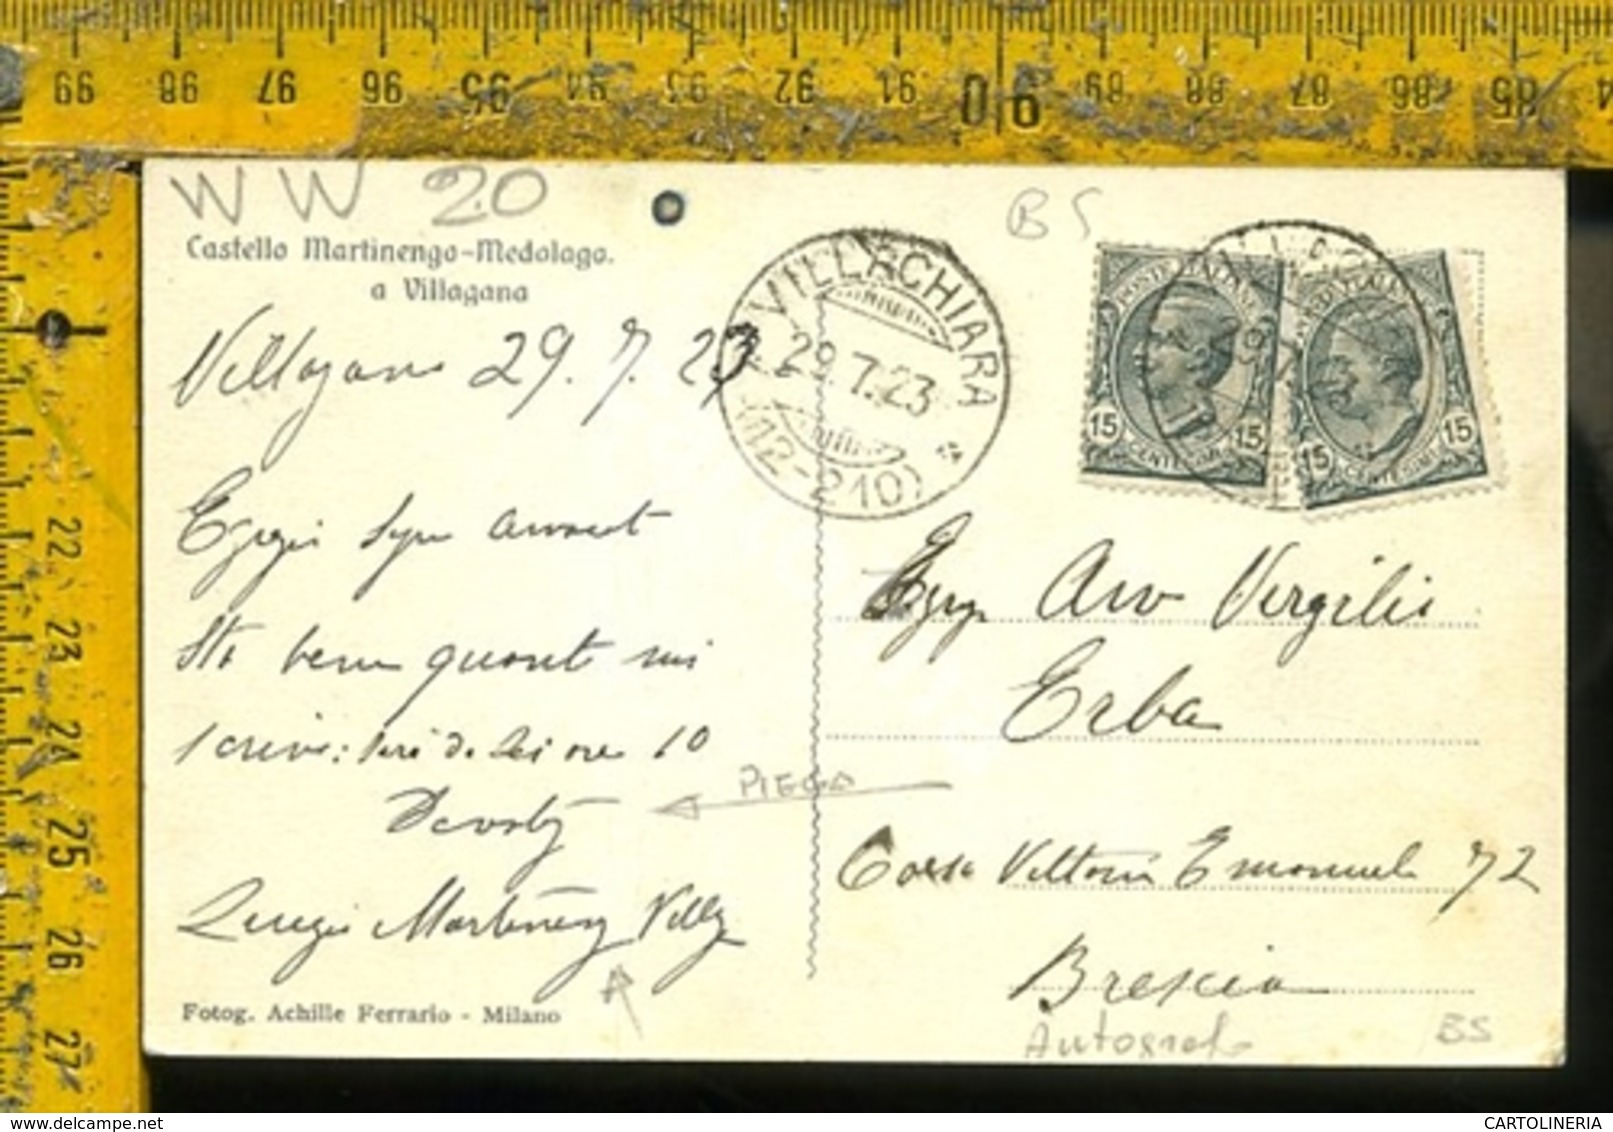 99 98 97 96 95 94 93 92 91 90 89 88 87 86 85 84
WW 20
BS
Castello Martinengo-Medolago.
a Villagana
VILLACHIARA
29.7.23
(12-210)
POSTE ITALIANE
15 CENTESIMI 15
15 CENTESIMI 15
Villagana 29.7.23
Egregio Signor Avvocat
Sta bene quanto mi
scrive: sarò da Lei ore 10
Devoty
Luigi Martinengo Villg
PIEGA
Egrg. Avv Vergilio
Erba
Corso Vittorio Emanuele 72
Brescia
Autografo
BS
Fotog. Achille Ferrario - Milano
22 23 24 25 26 27
CARTOLINERIA